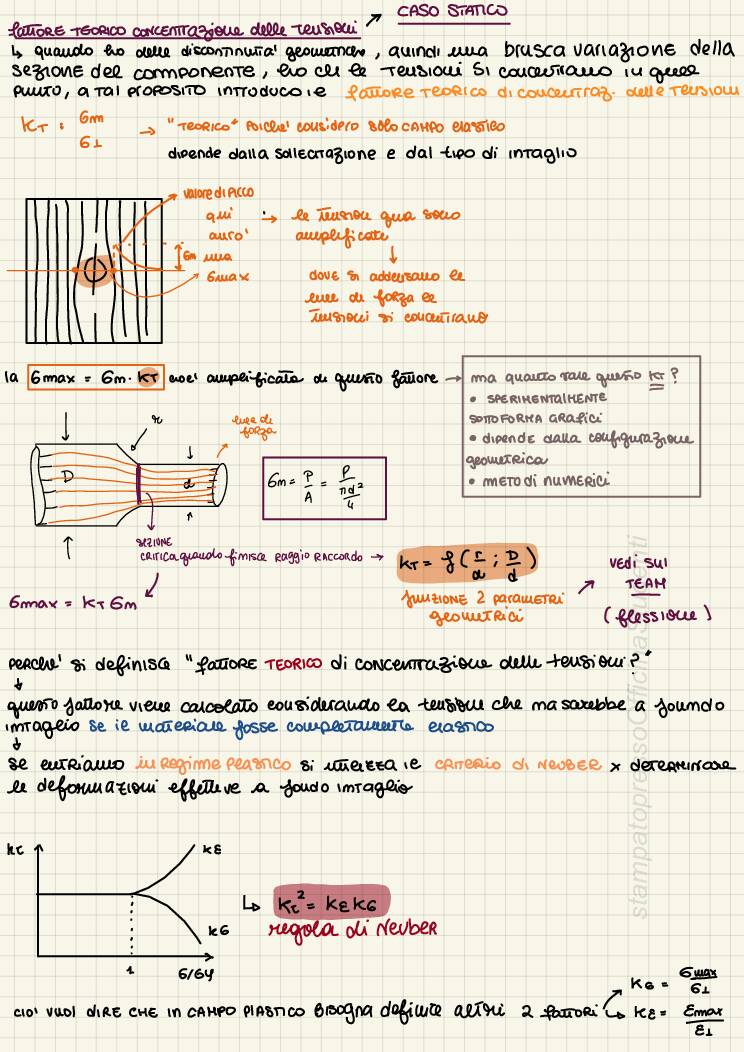 CASO STATICO
fattore TEORICO CONCENTRAZIONE delle TENSIONI
↳ quando ho delle discontinuità geometriche, quindi una brusca variazione della
sezione del componente, ho che le tensioni si concentrano in quel
punto, a tal proposito introduco il fattore TEORICO di CONCENTRAZ. delle TENSIONI
KT = σm
σ⊥
→ "TEORICO" poiché considero solo CAMPO elastico
dipende dalla sollecitazione e dal tipo di intaglio
valore di picco
qui
avrò
una
σmax
σm
→ le tensioni qua sono
amplificate
↓
dove si addensano le
linee di forza le
tensioni si concentrano
la σmax = σm · KT cioè amplificata di questo fattore →
ma quanto vale questo KT ?
• SPERIMENTALMENTE
SOTTOFORMA GRAFICI
• dipende dalla configurazione
geometrica
• METODI NUMERICI
r
linee di
forza
D
d
σm = P/A = P/(πd²/4)
SEZIONE
CRITICA quando finisce raggio RACCORDO →
KT = f (r/d ; D/d)
funzione 2 parametri
geometrici
vedi sul
TEAM
(flessione)
σmax = KT σm
PERCHÈ si definisce "fattore TEORICO di CONCENTRAZIONE delle tensioni?"
↓
questo fattore viene calcolato considerando la tensione che ma sarebbe a foundo
intaglio se il materiale fosse completamente elastico
↓
se entriamo in Regime Plastico si utilizza il CRITERIO di NEUBER x determinare
le deformazioni effettive a fondo intaglio
Kt
Kε
Kσ
1
σ/σy
↳ Kt² = Kε Kσ
regola di Neuber
Kσ = σmax/σ⊥
ciò vuol dire che in CAMPO PLASTICO BISOGNA definire altri 2 fattori
Kε = εmax/ε⊥
stampatopressoOfficinaStudenti